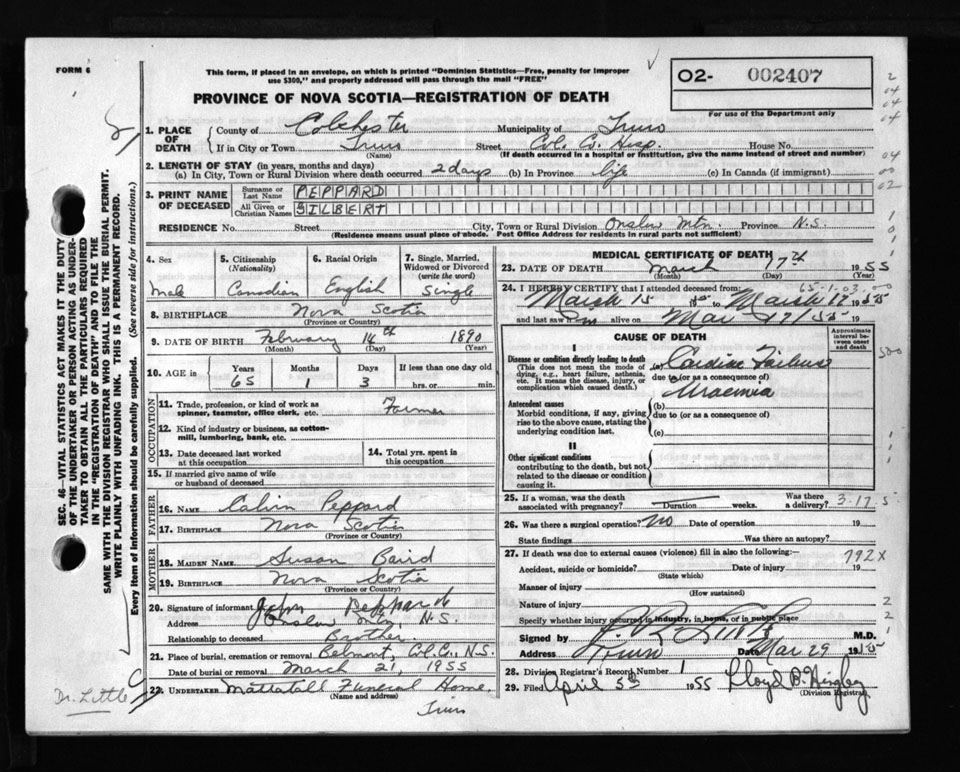 FORM 6
This form, if placed in an envelope, on which is printed "Dominion Statistics—Free, penalty for improper
use $300," and properly addressed will pass through the mail "FREE"
02- 002407
For use of the Department only
PROVINCE OF NOVA SCOTIA—REGISTRATION OF DEATH
1. PLACE OF DEATH
County of Colchester Municipality of Truro
If in City or Town Truro Street Col. Co. Hosp. House No.
(Name) (If death occurred in a hospital or institution, give the name instead of street and number)
2. LENGTH OF STAY (in years, months and days)
(a) In City, Town or Rural Division where death occurred 2 days (b) In Province life (c) In Canada (if immigrant)
3. PRINT NAME OF DECEASED
Surname or Last Name PEPPARD
All Given or Christian Names GILBERT
RESIDENCE No. Street City, Town or Rural Division Onslow Mtn. Province N.S.
(Residence means usual place of abode. Post Office Address for residents in rural parts not sufficient)
4. Sex Male
5. Citizenship (Nationality) Canadian
6. Racial Origin English
7. Single, Married, Widowed or Divorced (write the word) Single
8. BIRTHPLACE Nova Scotia
(Province or Country)
9. DATE OF BIRTH February 14th 1890
(Month) (Day) (Year)
10. AGE in Years Months Days If less than one day old
65 1 3 hrs. or min.
OCCUPATION
11. Trade, profession, or kind of work as spinner, teamster, office clerk, etc. Farmer
12. Kind of industry or business, as cotton-mill, lumbering, bank, etc.
13. Date deceased last worked at this occupation
14. Total yrs. spent in this occupation
15. If married give name of wife or husband of deceased
FATHER
16. NAME Calvin Peppard
17. BIRTHPLACE Nova Scotia
(Province or Country)
MOTHER
18. MAIDEN NAME Susan Baird
19. BIRTHPLACE Nova Scotia
(Province or Country)
20. Signature of informant John Peppard
Address Onslow Mtn, N.S.
Relationship to deceased Brother.
21. Place of burial, cremation or removal Belmont, Col. Co., N.S.
Date of burial or removal March 21, 1955
22. UNDERTAKER Mattatall Funeral Home,
(Name and address)
Truro
MEDICAL CERTIFICATE OF DEATH
23. DATE OF DEATH March 17th 1955
(Month) (Day)
24. I HEREBY CERTIFY that I attended deceased from: 65-1-03.00
March 15 19 March 17 1955
and last saw him alive on Mar 17/55 19
CAUSE OF DEATH
Approximate interval between onset and death
I
Disease or condition directly leading to death
(This does not mean the mode of dying, e.g., heart failure, asthenia, etc. It means the disease, injury, or complication which caused death.)
Cardiac Failure
due to (or as a consequence of)
Uraemia
Antecedent causes
Morbid conditions, if any, giving rise to the above cause, stating the underlying condition last.
(b)
due to (or as a consequence of)
(c)
II
Other significant conditions
contributing to the death, but not related to the disease or condition causing it.
25. If a woman, was the death associated with pregnancy? Duration weeks. Was there a delivery? 3-17.5
26. Was there a surgical operation? No Date of operation 19
State findings Was there an autopsy?
27. If death was due to external causes (violence) fill in also the following:— 792X
Accident, suicide or homicide? Date of injury 19
(State which)
Manner of injury
(How sustained)
Nature of injury
Specify whether injury occurred in industry, in home, or in public place
Signed by M.D.
Address Truro Date Mar 29 1955
28. Division Registrar's Record Number 1
29. Filed April 5th 1955 Lloyd B.
(Division Registrar)
SEC. 46—VITAL STATISTICS ACT MAKES IT THE DUTY
OF THE UNDERTAKER OR PERSON ACTING AS UNDER-
TAKER TO OBTAIN ALL THE PARTICULARS REQUIRED
IN THE "REGISTRATION OF DEATH" AND TO FILE THE
SAME WITH THE DIVISION REGISTRAR WHO SHALL ISSUE THE BURIAL PERMIT.
WRITE PLAINLY WITH UNFADING INK. THIS IS A PERMANENT RECORD.
Every item of information should be carefully supplied. (See reverse side for instructions.)
Dr. Little
2
04
04
04
04
00
02
500